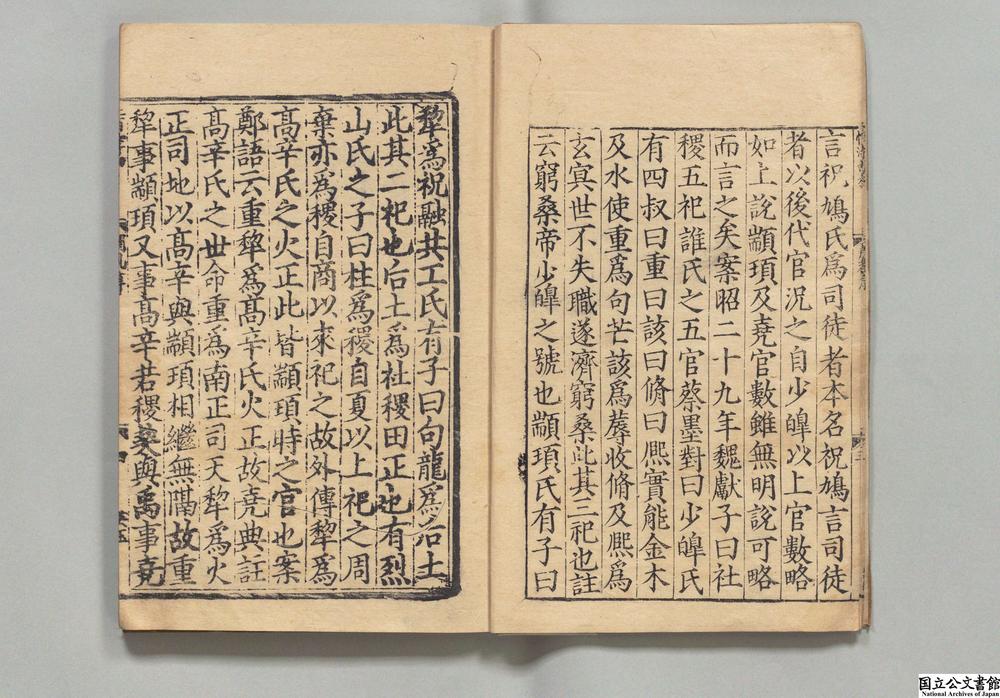 言祝鳩氏爲司徒者本名祝鳩言司徒
者以後代官況之自少皥以上官數略
如上說顓頊及堯官數雖無明說可略
而言之矣案昭二十九年魏獻子曰社
稷五祀誰氏之五官蔡墨對曰少皥氏
有四叔曰重曰該曰脩曰熈實能金木
及水使重爲句芒該爲蓐收脩及熈爲
玄冥世不失職遂濟窮桑此其三祀也註
云窮桑帝少皥之號也顓頊氏有子曰
犂爲祝融共工氏有子曰句龍爲后土
此其二祀也后土爲社稷田正也有烈
山氏之子曰柱爲稷自夏以上祀之周
棄亦爲稷自商以來祀之故外傳犂爲
髙辛氏之火正此皆顓頊時之官也案
鄭語云重犂爲髙辛氏火正故堯典註
髙辛氏之世命重爲南正司天犂爲火
正司地以髙辛與顓頊相繼無隔故重
犂事顓頊又事髙辛若稷契與禹事堯
国立公文書館
National Archives of Japan